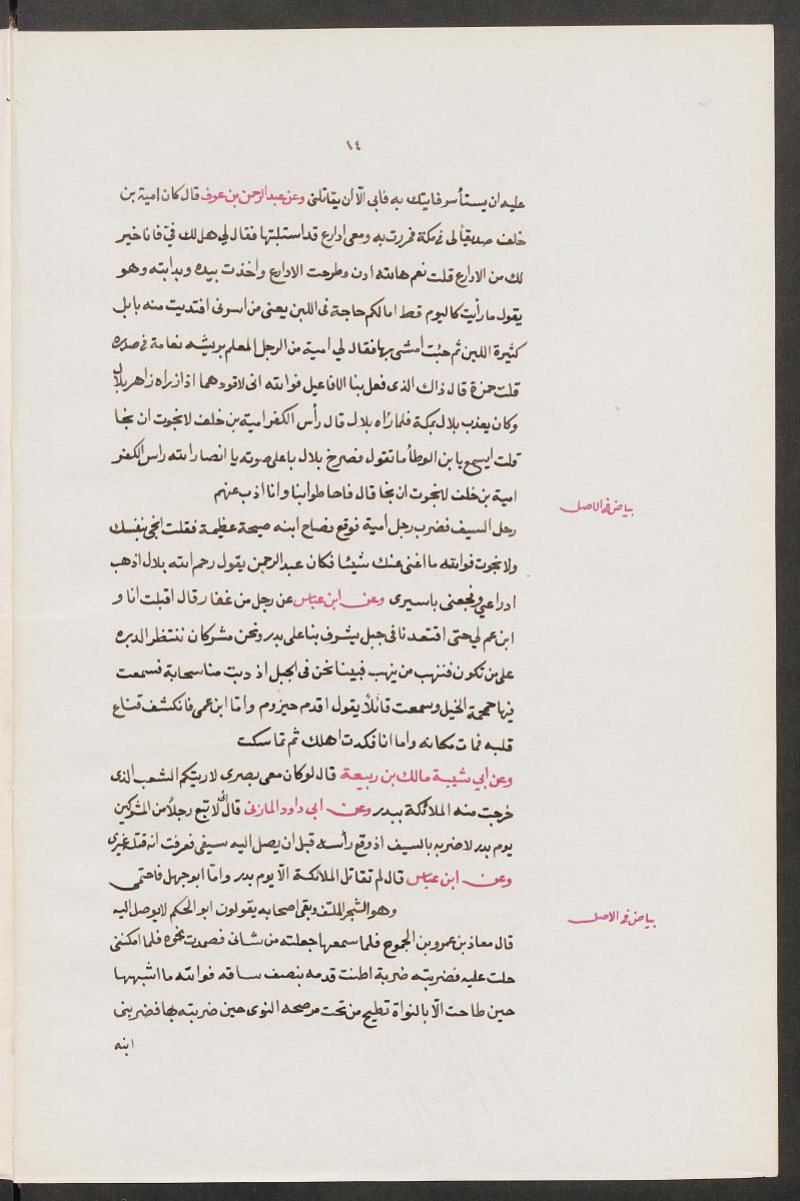 ١٤
عليه ان يستأسر فاتيتك به فابى الّا ان يقاتلنى وعن عبد الرحمن بن عوف قال كان امية بن
خلف صديقاً لى فى مكة فمررت به ومعى ادارع قد استلبتها فقال لى هل لك فىّ فانا خير
لك من الادارع قلت نعم ها الله اذن وطرحت الادارع واخذت بيده وبدابته وهو
يقول ما رأيت كاليوم قط اما لكم حاجة فى اللبن يعنى من اسرنى افتديت منه بابل
كثيرة اللبن ثم جئت امشى بهما فقال لي امية من الرجل المعلم بريشه نعامة فى صدره
قلت حمزة قال ذاك الذى فعل بنا الافاعيل فوالله انى لاقودهما اذ راه بلال
وكان يعذب بلال بمكة فلما رأه بلال قال رأس الكفر امية بن خلف لا نجوت ان نجا
قلت ايسمع يا بن الوطأ ما تقول فصرخ بلال باعلى صوته يا انصار الله راس الكفر
امية بن خلف لا نجوت ان نجا قال فاحاطوا بنا وانا اذب عنهم
بياض فى الاصل
رجل السيف فضرب رجل أمية فوقع فصاح ابنه صيحة عظيمة فقلت انجى بنفسك
ولا نجوت فوالله ما اغنى عنك شيئا فكان عبد الرحمن يقول رحم الله بلال اذهب
ادراعي وفجعنى باسيرى وعن ابن عباس عن رجل من غفار قال اقبلت انا و
ابن عم لي حتى اقتعدنا فى جبل يشرف بنا على بدر ونحن مشركان ننتظر الدبره
على من تكون فننهب من ينهب فبينا نحن فى الجبل اذ دبت منا سحابة فسمعت
فيها حمحمة الخيل وسمعت قائلاً يقول اقدم حيزوم واما ابن عمى فانكشف قناع
قلبه فمات مكانه واما انا فكدت اهلك ثم تماسكت
وعن ابي شيبة مالك بن ربيعة قال لو كان معى بصرى لاريتكم الشعب الذى
خرجت منه الملائكة ببدر وعن ابى داود المازنى قال انى لاتبع رجلاً من المشركين
يوم بدر لاضربه بالسيف اذ وقع رأسه قبل ان يصل اليه سيفى فعرفت انه قتله غيرى
وعن ابن عباس قال لم تقاتل الملائكة الّا يوم بدر واما ابو جهل فاحتمى
بياض فى الاصل
وهو الشجر الملتف وبقى اصحابه يقولون ابو الحكم لا يوصل اليه
قال معاذ بن عمرو بن الجموح فلما سمعها جعلته من شانى فصمدت نحوه فلما امكننى
حملت عليه فضربته ضربة اطنت قدمه بنصف ساقه فوالله ما اشبهها
حين طاحت الّا بالنواة تطيح من تحت مرضخة النوى حين ضربته بها فضربنى
ابنه